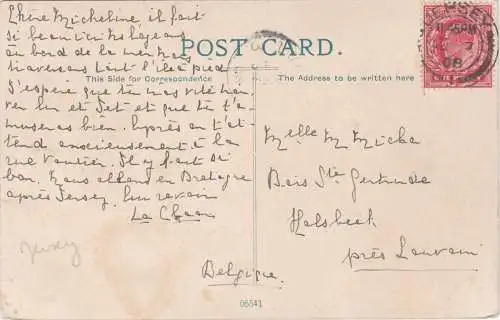 Chère Micheline il fait
si beau ici nous logeons
au bord de la mer nous
traversons tout l'île à pied
J'espère que tu vas vite
et que tu t'a-
museras bien. Après on t'at-
tend anxieusement à la
rue Vautier. Il y fait si
bon. Nous allons en Bretagne
après Jersey. Au revoir
POST CARD.
This Side for Correspondence
The Address to be written here
JERSEY
08
Melle M Micha
Bois Ste Gertrude
Holsbeek
près Louvain
Belgique
Jersey
06541